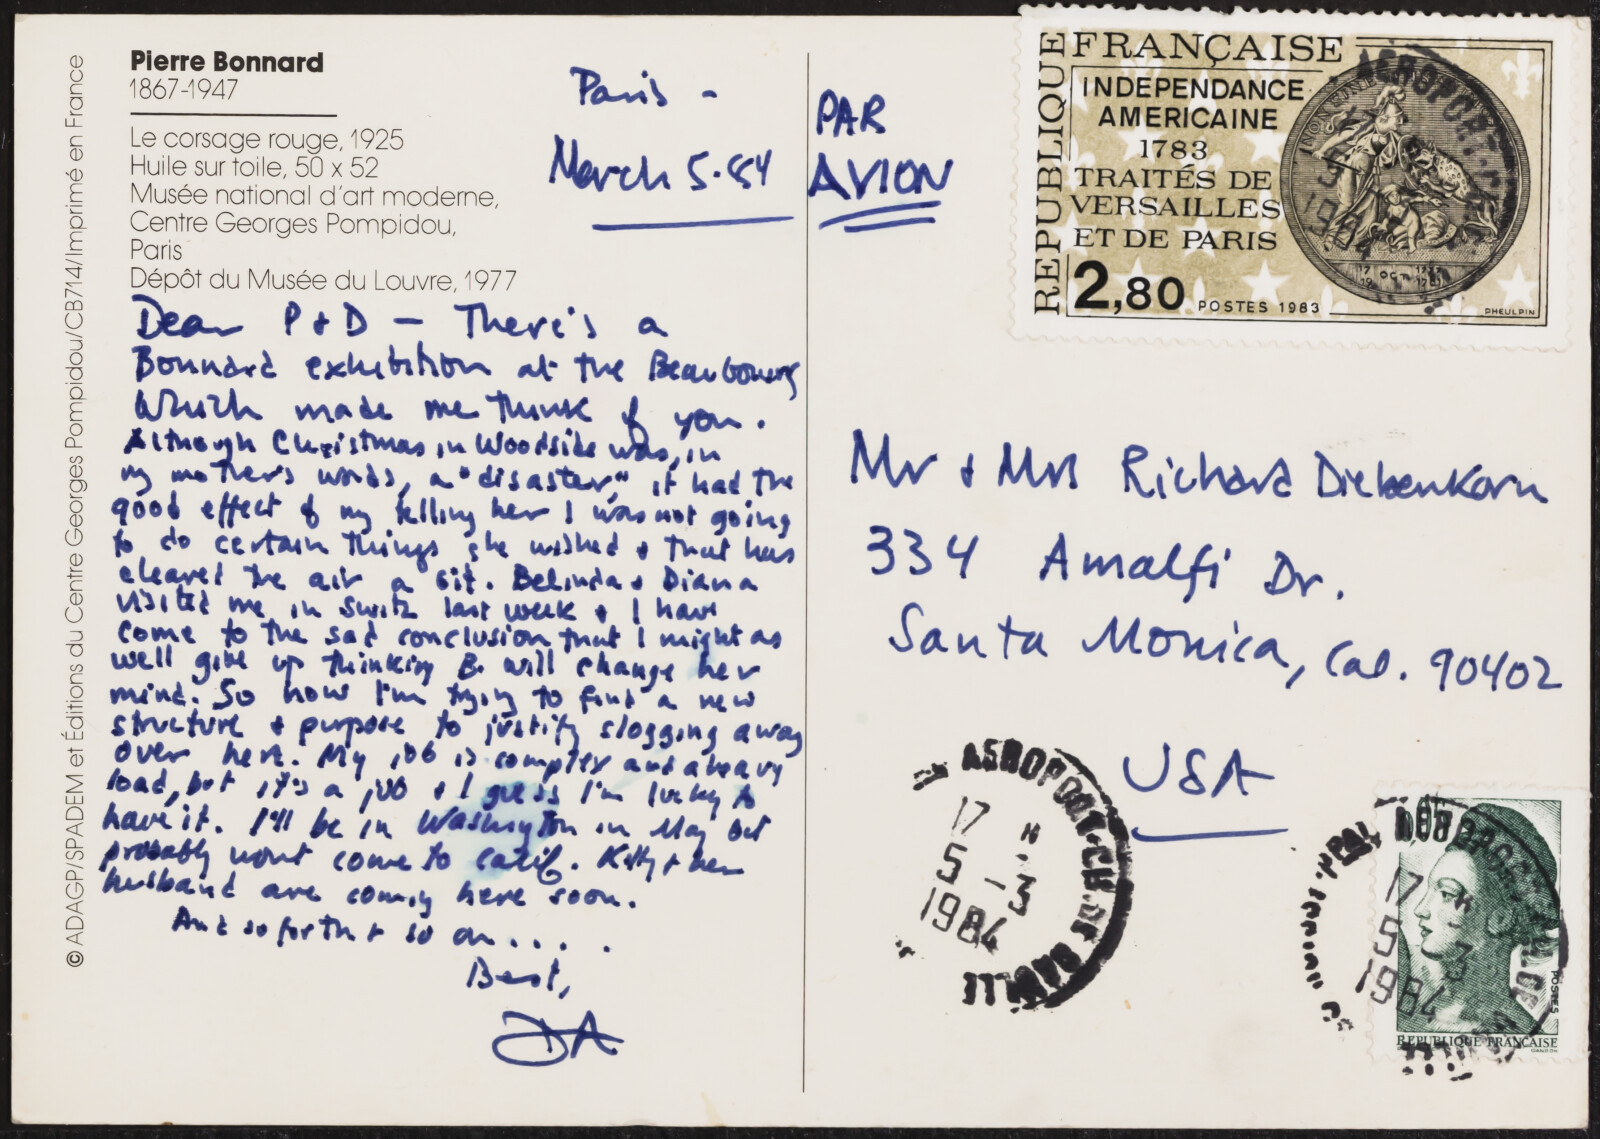 Pierre Bonnard
1867-1947
Le corsage rouge, 1925
Huile sur toile, 50 x 52
Musée national d'art moderne,
Centre Georges Pompidou,
Paris
Dépôt du Musée du Louvre, 1977
© ADAGP/SPADEM et Éditions du Centre Georges Pompidou/CB714/Imprimé en France
Paris -
March 5.84
PAR
AVION
Dear P + D — There's a
Bonnard exhibition at the Beaubourg
which made me think of you.
Although Christmas in Woodside was, in
my mother's words, a "disaster," it had the
good effect of my telling her I was not going
to do certain things she wished + that has
cleared the air a bit. Belinda + Diana
visited me in Switz last week + I have
come to the sad conclusion that I might as
well give up thinking B. will change her
mind. So now I'm trying to find a new
structure + purpose to justify slogging away
over here. My job is complex and a heavy
load, but it's a job + I guess I'm lucky to
have it. I'll be in Washington in May but
probably wont come to Calif. Kitty + her
husband are coming here soon.
And so forth + so on . . . .
Best,
DA
REPUBLIQUE FRANÇAISE
INDEPENDANCE
AMERICAINE
1783
TRAITÉS DE
VERSAILLES
ET DE PARIS
2,80 POSTES 1983
PHEULPIN
17 OCT 1777
19 OCT 1781
AEROPORT
1984
Mr + Mrs Richard Diebenkorn
334 Amalfi Dr.
Santa Monica, Cal. 90402
USA
AEROPORT-CH. DE GAULLE
17 H
5 - 3
1984
AEROPORT
17 H
5 - 3
1984
POSTES
REPUBLIQUE FRANÇAISE